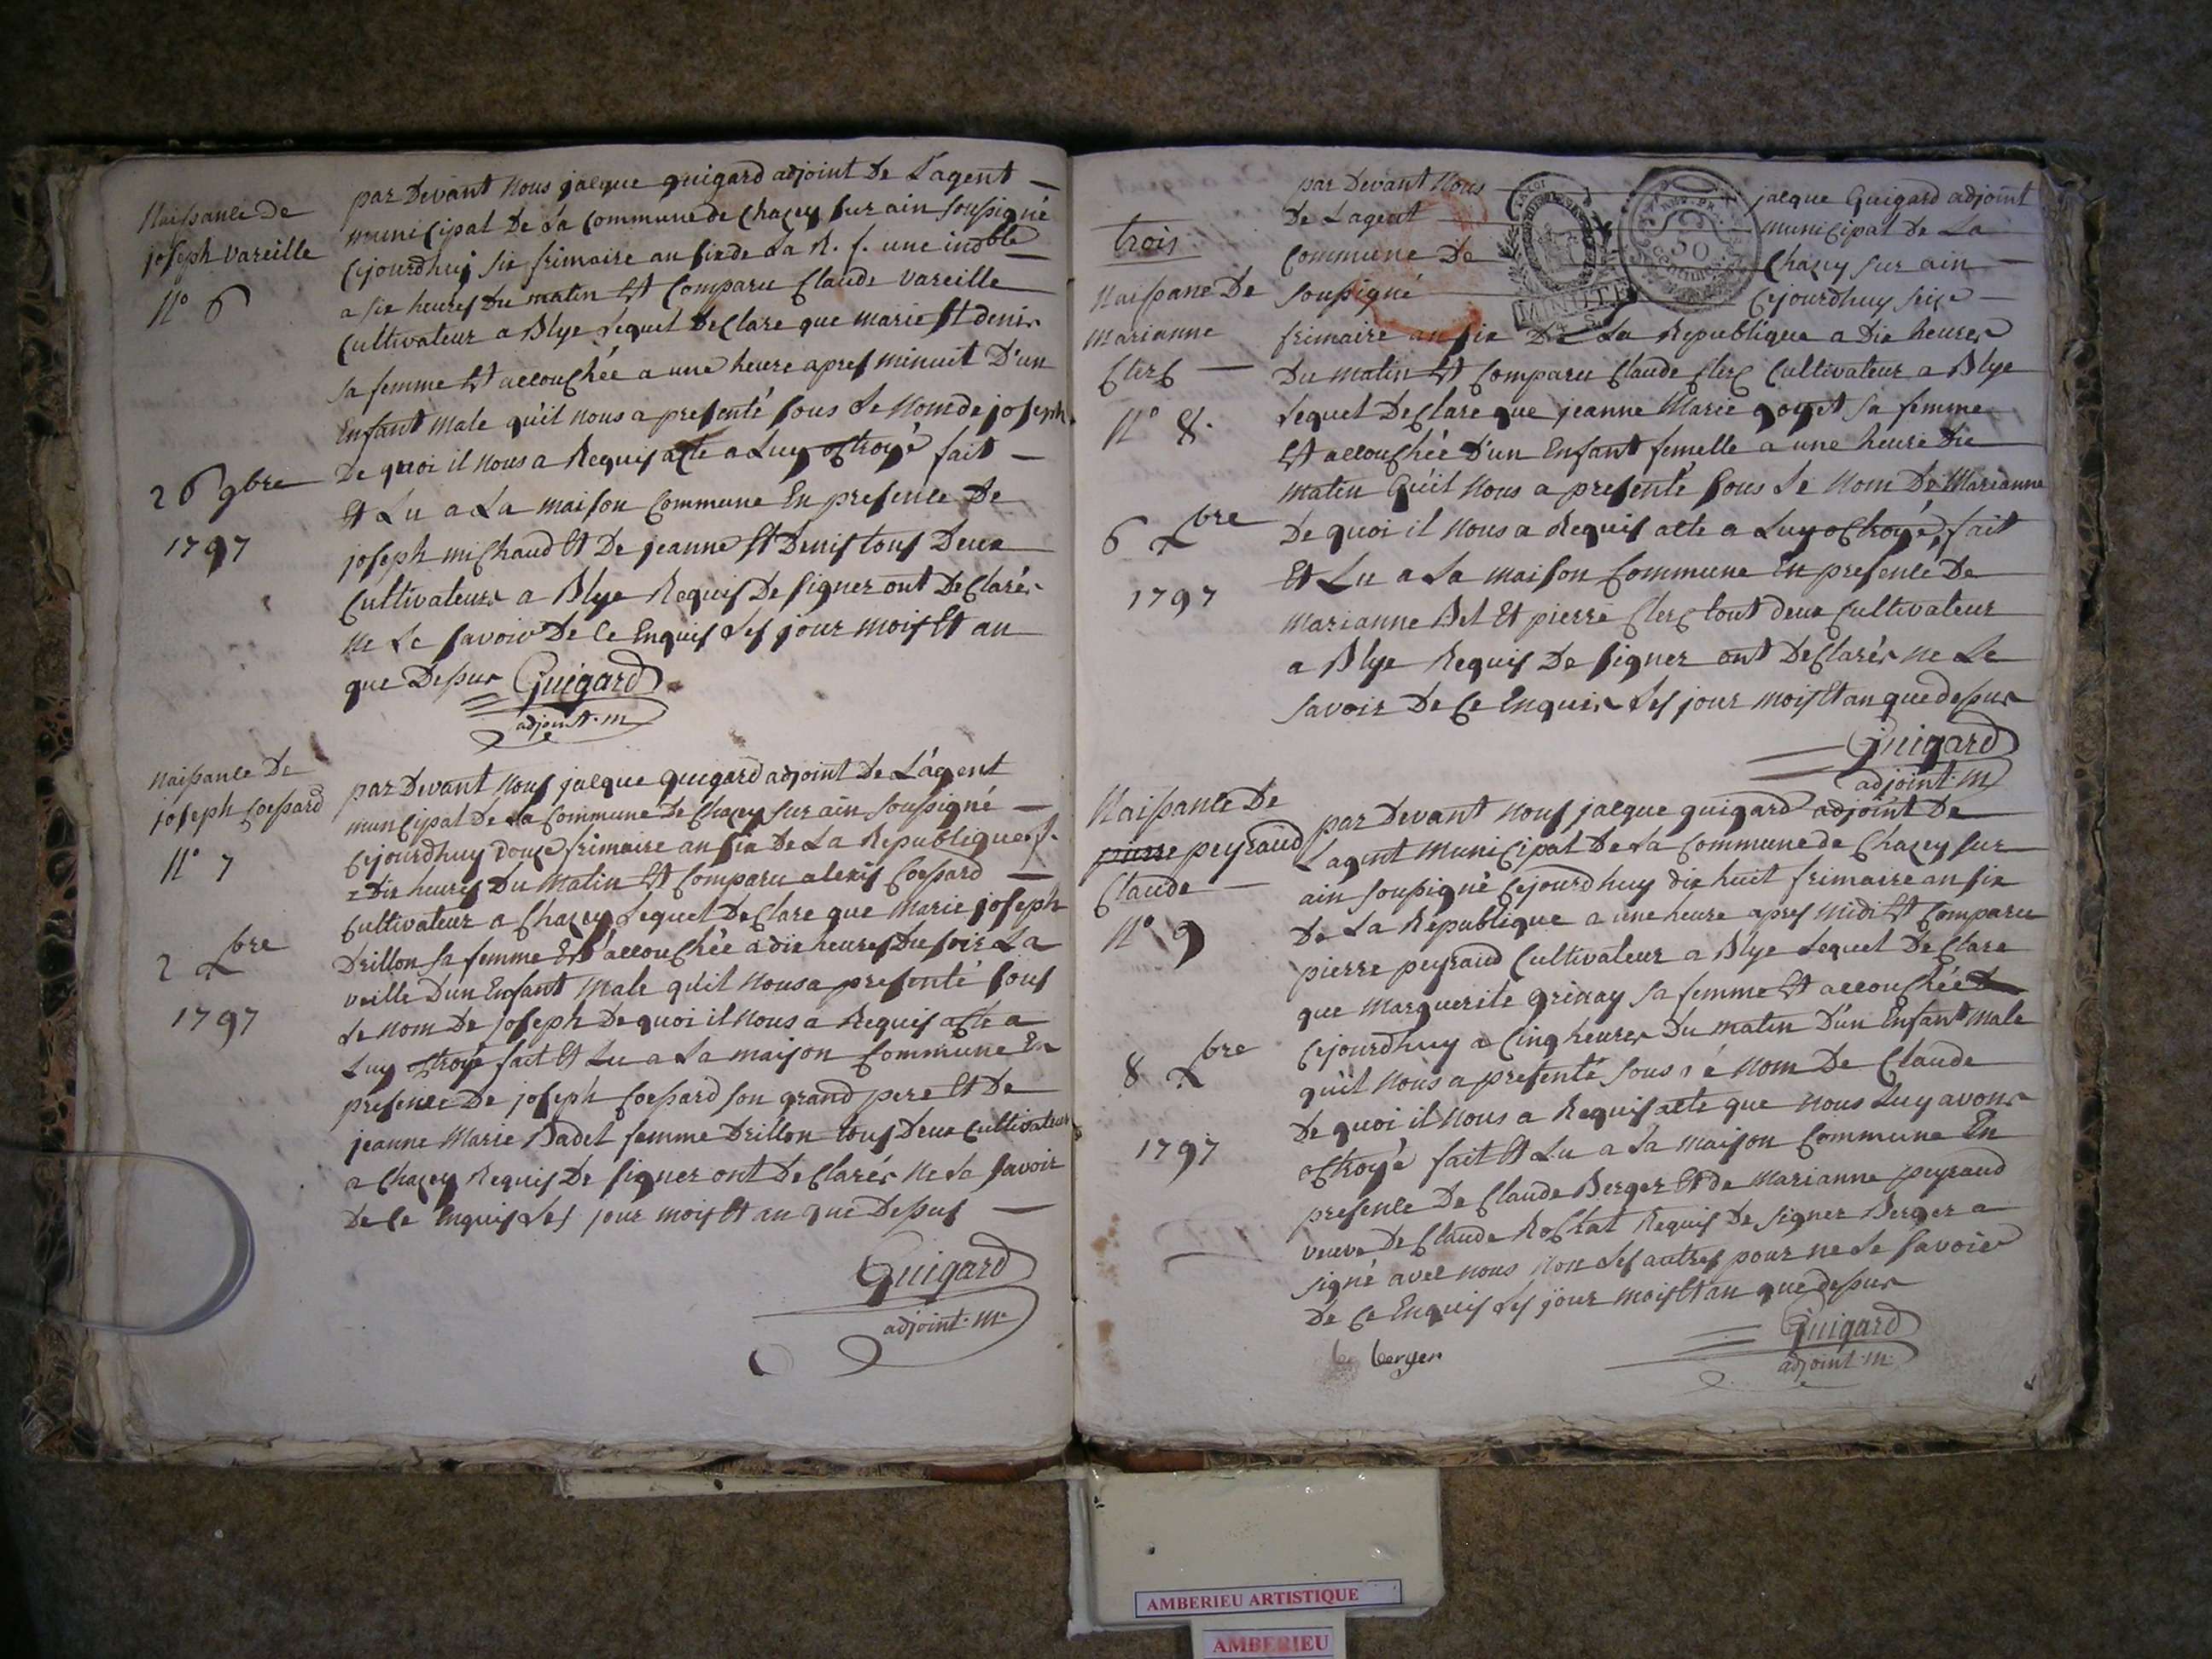 Naissance de
joseph vareille
N° 6
26 9bre
1797
par Devant nous jacque guigard adjoint De L'agent
municipal De La Commune de Chazey sur ain soussigné
Cejourdhuy six frimaire an six de La R. f. une indble
a six heures Du matin Est Comparu Claude vareille
Cultivateur a Blye Lequel DeClare que marie St denis
sa femme Est accouchée a une heure apres minuit D'un
Enfant male qu'il nous a presenté sous Le Nom de joseph
De quoi il nous a Requis acte a Luy octroyé fait
Et Lu a La maison Commune En presence De
joseph michaud Et De jeanne St Denis tous Deux
Cultivateurs a Blye Requis De signer ont DeClarés
ne Le savoir De Ce Enquis Les jour mois Et an
que Dessus Guigard
adjoint m
Naissance De
joseph Cossard
N° 7
2 Xbre
1797
par Devant nous jacque guigard adjoint De L'agent
muncipal De La Commune De Chazey sur ain soussigné
Cejourdhuy douze frimaire an six De La Republique f.
a Dix heures Du matin Est Comparu alexis Cossard
Cultivateur a Chazey Lequel DeClare que Marie joseph
Drillon sa femme Est accouchée a dix heures Du soir La
veille Dun Enfant male qu'il nous a presenté sous
Le nom De joseph De quoi il nous a Requis acte a
Luy octroyé fait Et Lu a La maison Commune En
presence De joseph Cossard son grand pere Et De
jeanne Marie Badel femme Drillon tous Deux Cultivateurs
a Chazey Requis De signer ont DeClarés ne Le savoir
De Ce Enquis Les jour mois Et an que Dessus
Guigard
adjoint m
trois
Naissane De
Marianne
Clerc
N° 8.
6 Xbre
1797
par Devant Nous jacque Guigard adjoint
De Lagent municipal De La
Commune De Chazey sur ain
soussigné Cejourdhuy seize
MINUTE
50
frimaire an six De La Republique a Dix heures
Du matin Est Comparu Claude Clerc Cultivateur a Blye
Lequel DeClare que jeanne Marie goyet sa femme
Est accouchée D'un Enfant femelle a une heure Du
matin Qu'il nous a presenté sous Le Nom De Marianne
De quoi il nous a Requis acte a Luy octroyé, fait
Et Lu a La maison Commune En presence De
Marianne Bel Et pierre Clerc tout deux Cultivateur
a Blye Requis De signer ont DeClarés ne Le
savoir De Ce Enquis Les jour mois Et an que dessus
Guigard
adjoint m
Naissance De
pierre peyraud
Claude
N° 9
8 Xbre
1797
par Devant nous jacque guigard adjoint De
Lagent municipal De La Commune de Chazey sur
ain soussigné Cejourdhuy dix huit frimaire an six
De La Republique a une heure apres midi Est Comparu
pierre peyraud Cultivateur a Blye Lequel DeClare
que Marguerite grinay sa femme Est accouchée
Cejourdhuy a Cinq heures Du matin D'un Enfant male
qu'il nous a presenté sous Le nom De Claude
De quoi il nous a Requis acte que nous Luy avons
octroyé fait Et Lu a La maison Commune En
presence De Claude Berger Et de Marianne peyraud
veuve De Claude Rochat Requis De signer Berger a
signé avec nous non Les autres pour ne Le savoir
De Ce Enquis Les jour mois Et an que dessus
Guigard
adjoint m
berger
AMBERIEU ARTISTIQUE
AMBERIEU